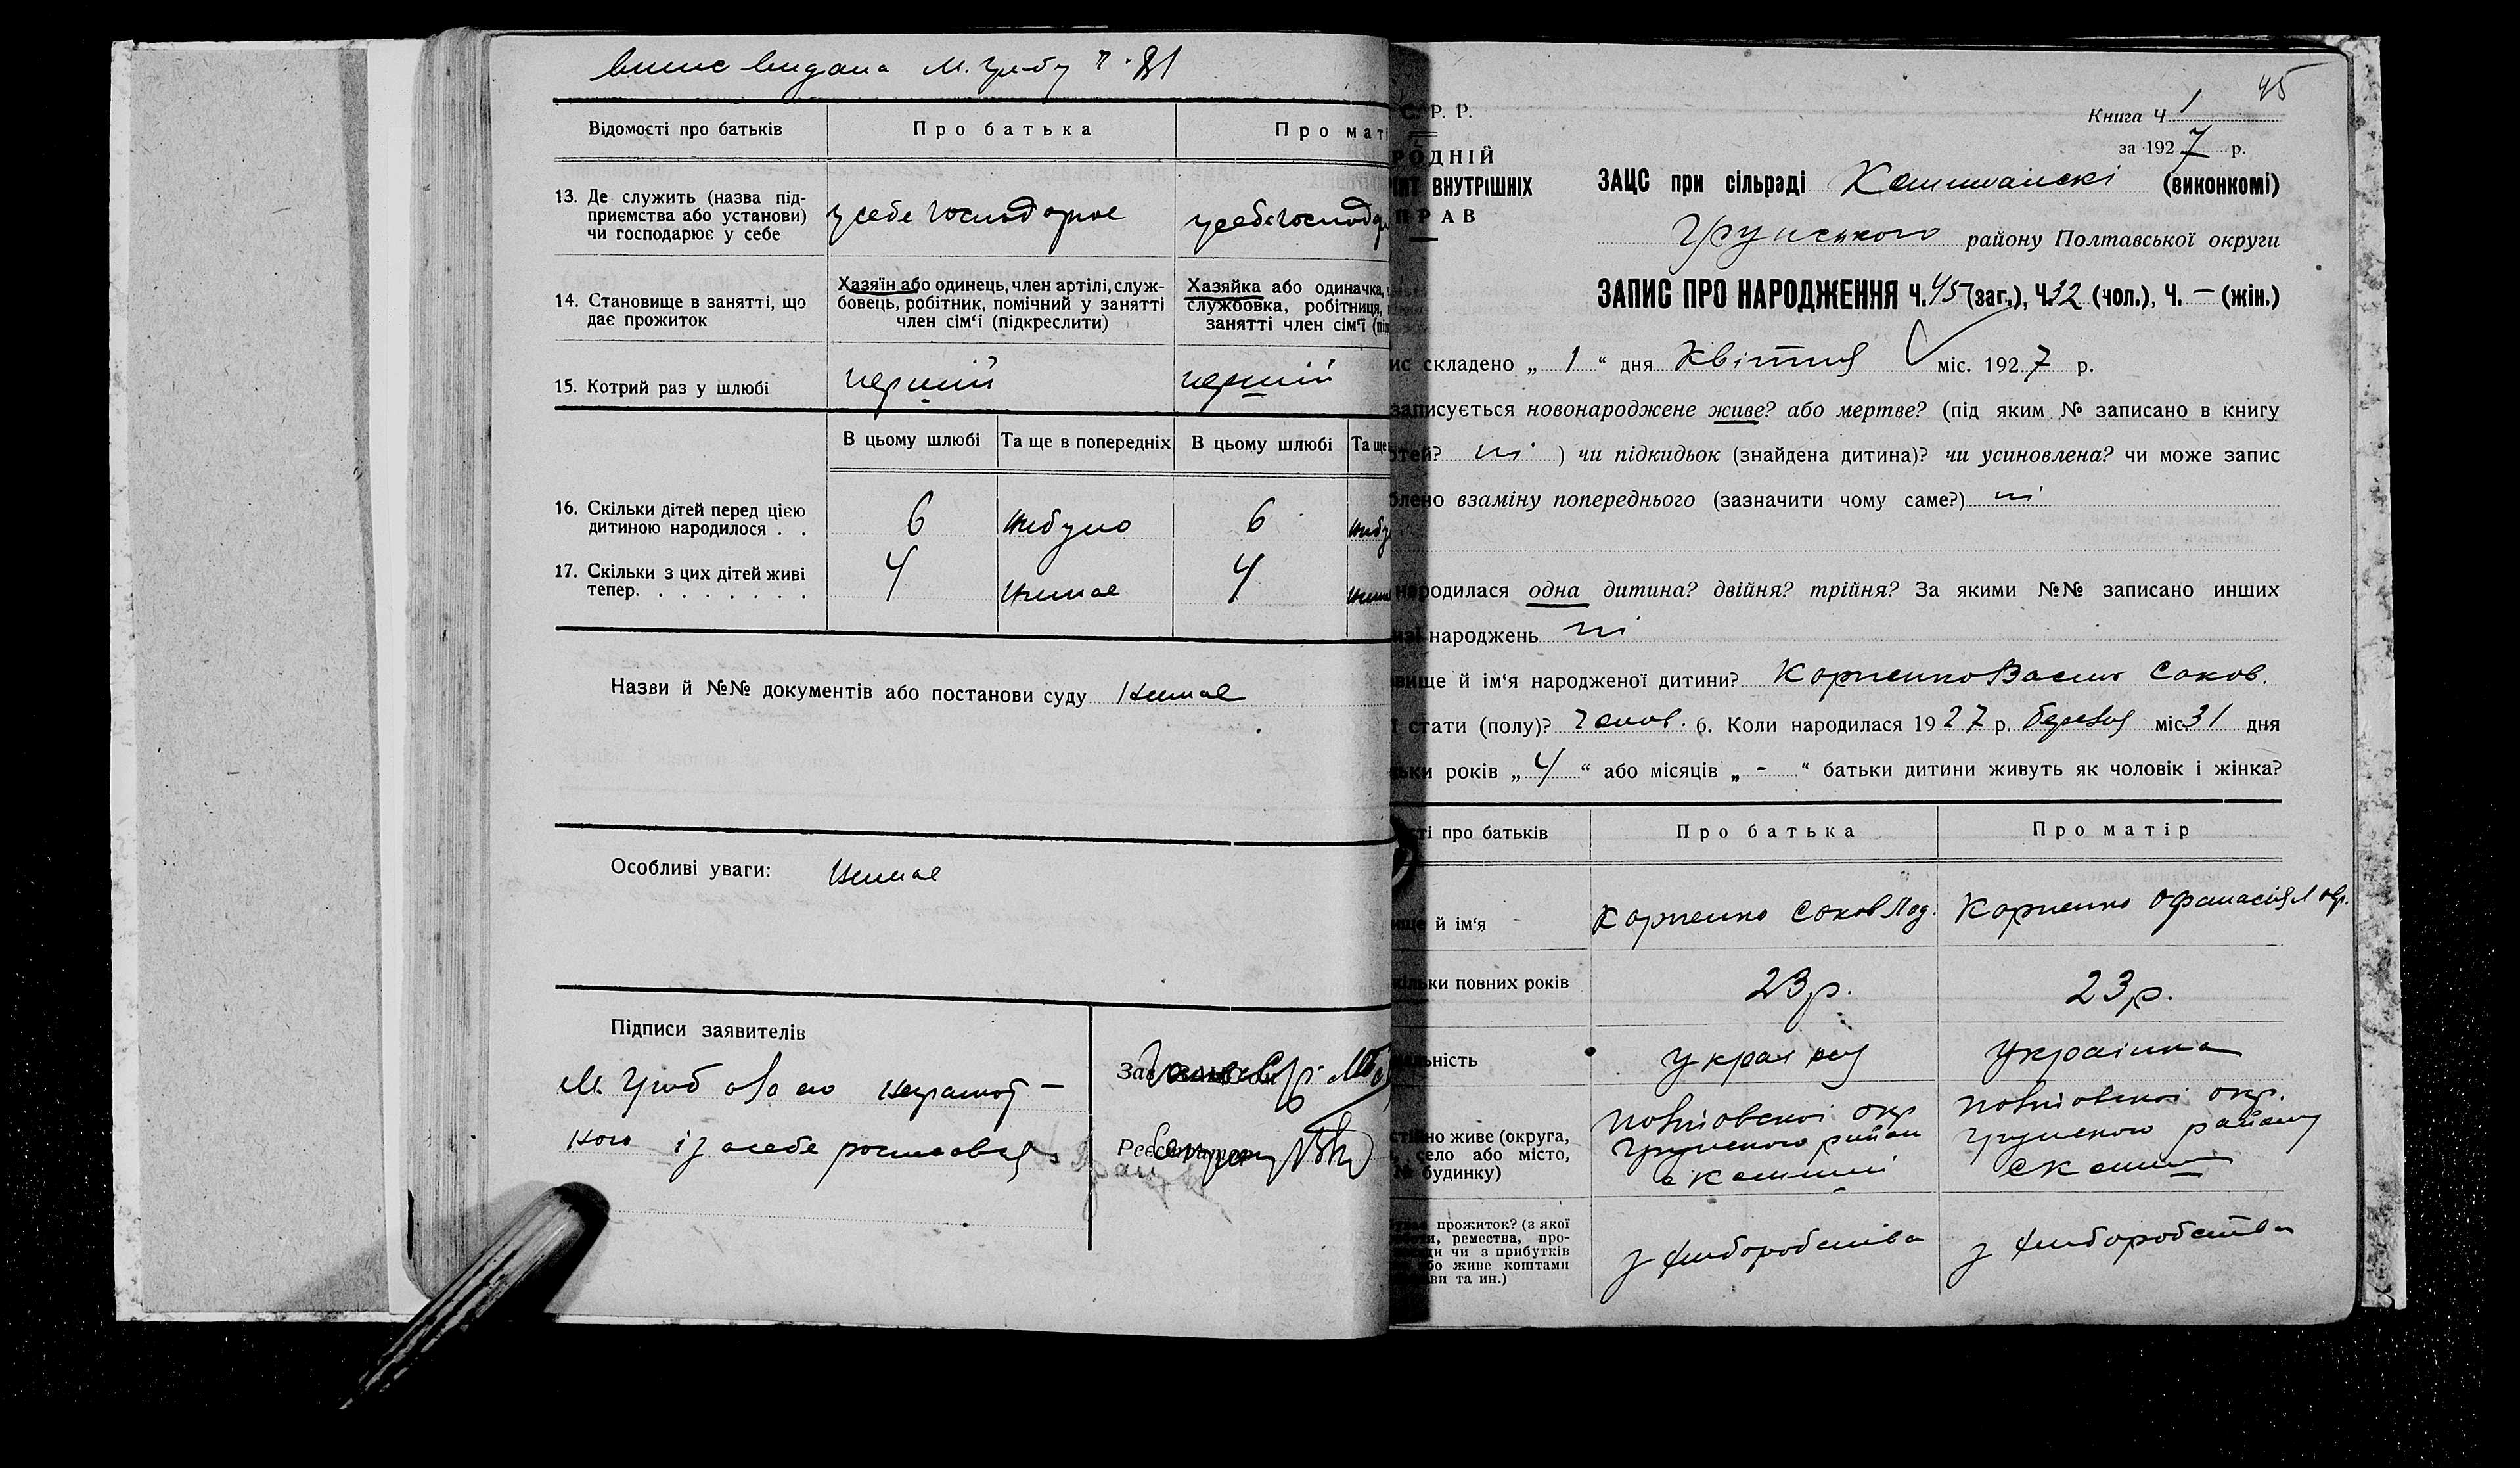 випис видана М. Грибу
Відомості про батьків
Про батька
Про маті
13. Де служить (назва під-
приємства або установи)
чи господарює у себе
у себе господарює
у себе господар
14. Становище в занятті, що
дає прожиток
Хазяїн або одинець, член артілі, служ-
бовець, робітник, помічний у занятті
член сім'ї (підкреслити)
Хазяйка або одиначка,
службовка, робітниця,
занятті член сім'ї (під
15. Котрий раз у шлюбі
перший
перший
В цьому шлюбі
Та ще в попередніх
В цьому шлюбі
Та ще
16. Скільки дітей перед цією
дитиною народилося . .
6
небуло
6
небу
17. Скільки з цих дітей живі
тепер. . . . . . . .
4
немае
4
нема
Назви й №№ документів або постанови суду немае
Особливі уваги: немае
Підписи заявителів
М. Гриб а за його неграмот-
ного і за себе росписавсь
Зав. ЗАНС'ом
Реєстратор
45
С. Р. Р.
РОДНІЙ
ІЯТ ВНУТРІШНІХ
ПРАВ
Книга Ч 1
за 1927 р.
ЗАЦС при сільраді (виконкомі)
Грунського району Полтавської округи
ЗАПИС ПРО НАРОДЖЕННЯ Ч. 45 (заг.), Ч. 32 (чол.), Ч. — (жін.)
ис складено „ 1 “ дня Квітня міс. 1927 р.
записується новонароджене живе? або мертве? (під яким № записано в книгу
тей? ні ) чи підкидьок (знайдена дитина)? чи усиновлена? чи може запис
блено взаміну попереднього (зазначити чому саме?) ні
народилася одна дитина? двійня? трійня? За якими №№ записано инших
изі народжень ні
вище й ім'я народженої дитини? Корненко Васил Соков.
ї стати (полу)? чолов. 6. Коли народилася 1927 р. березня міс. 31 дня
ьки років „ 4 “ або місяців „ - “ батьки дитини живуть як чоловік і жінка?
ті про батьків
Про батька
Про матір
ище й ім'я
Корненко Соков
Корненко Офанасія
кільки повних років
23 р.
23 р.
льність
україн
українка
стійно живе (округа,
, село або місто,
№ будинку)
Полтовскої окр
Грунского район
Полтовскої окр.
Грунского району
прожиток? (з якої
ти, ремества, про-
ди чи з прибутків
бо живе коштами
ви та ин.)
з хліборобства
з хліборобства